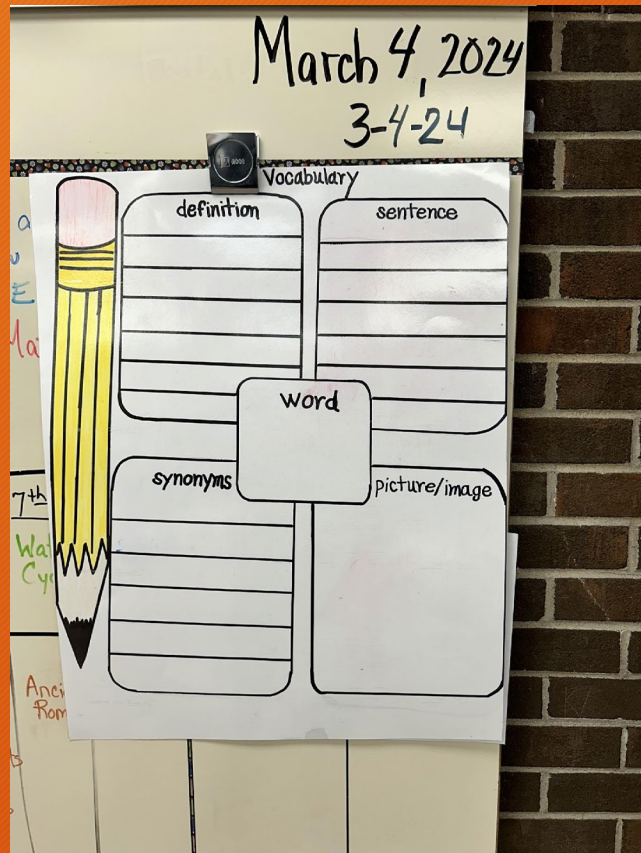 March 4, 2024
3-4-24
Vocabulary
definition
sentence
word
synonyms
picture/image
7th